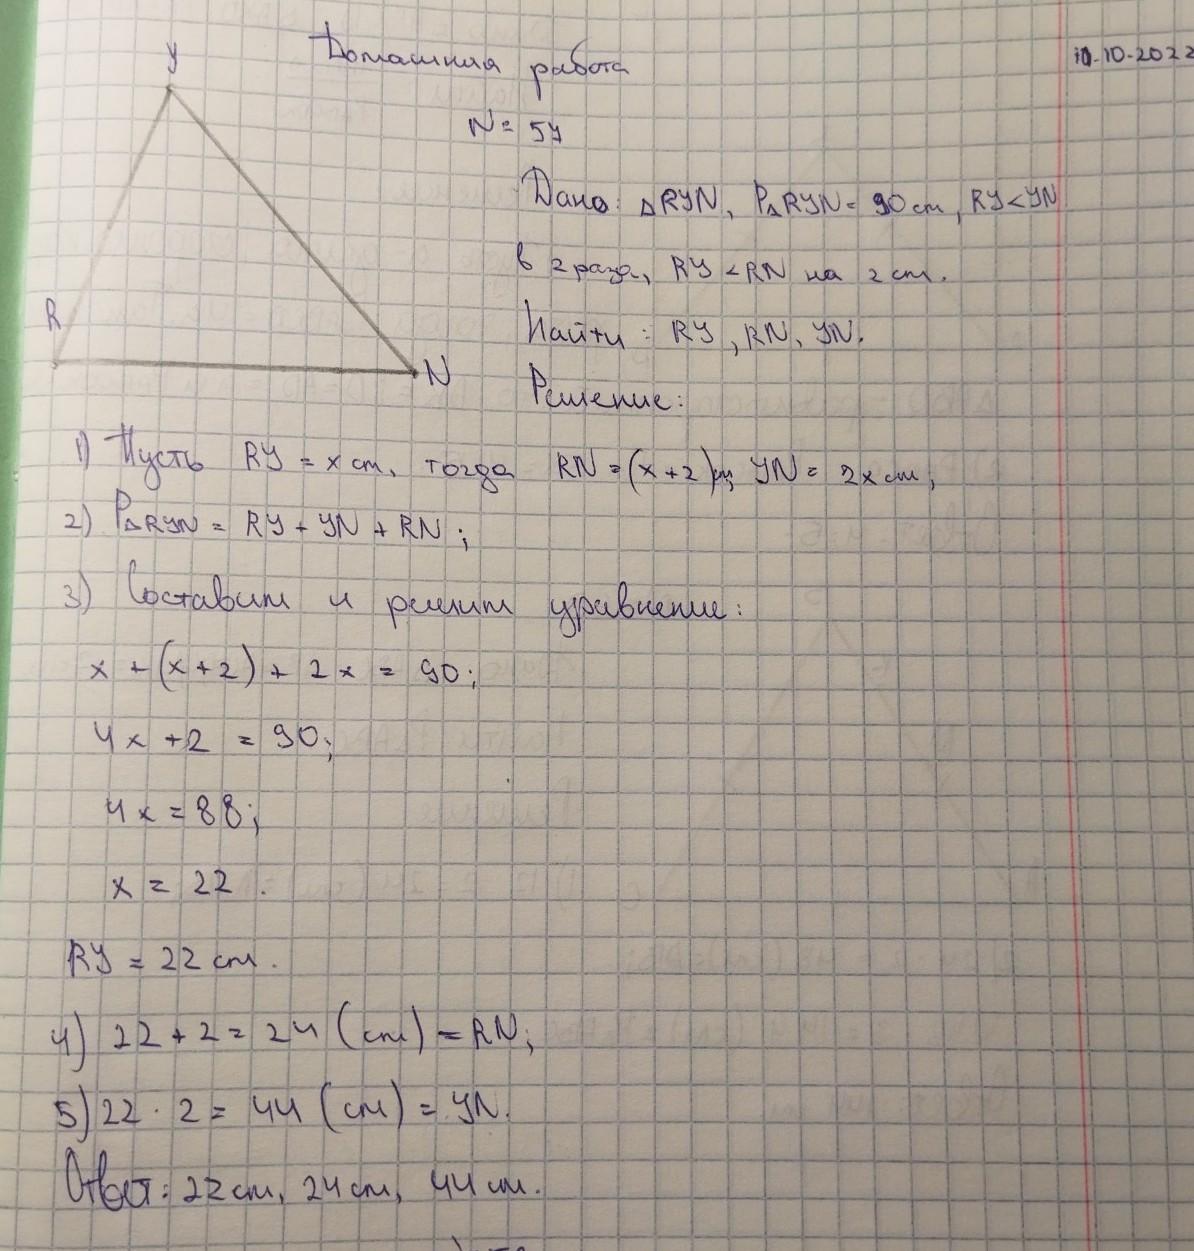 Домашняя работа
10.10.2022
У
N = 54
Дано: △RYN, P△RYN = 90 см, RY < YN
в 2 раза, RY < RN на 2 см.
R
Найти: RY, RN, YN.
N
Решение:
1) Пусть RY = x см, тогда RN = (x + 2) см, YN = 2x см;
2) P△RYN = RY + YN + RN;
3) Составим и решим уравнение:
x + (x + 2) + 2x = 90;
4x + 2 = 90;
4x = 88;
x = 22.
RY = 22 см.
4) 22 + 2 = 24 (см) = RN;
5) 22 · 2 = 44 (см) = YN.
Ответ: 22 см, 24 см, 44 см.